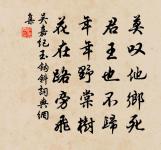 莫叹他乡死
君王也不归
年年野棠树
花在路旁飞
吴嘉纪玉钩斜词典网
集